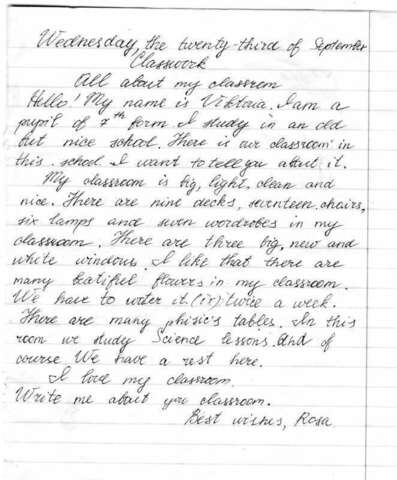 Wednesday, the twenty-third of September
Classwork
All about my classrom
Hello! My name is Viktoria. I am a
pupil of 7th form. I study in an old
but nice school. There is our classroom in
this school. I want to tell you about it.
My classroom is big, light, clean and
nice. There are nine decks, seventeen chairs,
six lamps and seven wordrobes in my
classroom. There are three big, new and
white windows. I like that there are
many beatiful flowers in my classroom.
We have to writer it (ir) twice a week.
There are many phisic's tables. In this
room we study Science lessons. And of
course We have a rest here.
I love my classroom.
Write me about you classroom.
Best wishes, Rosa